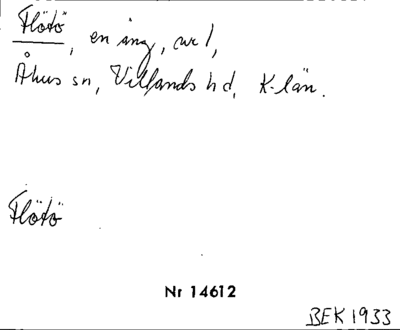 Flötö, en äng, avs 1,
Åhus sn, Villands hd, K-län.
Flötö
Nr 14612
BEK 1933